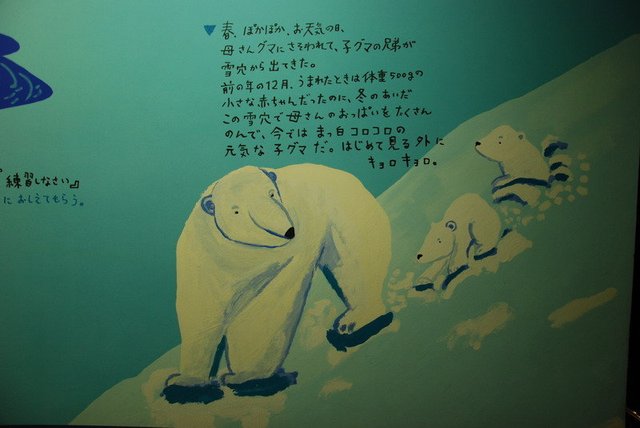 ▼春、ぽかぽか、お天気の日、
母さんグマにさそわれて、子グマの兄弟が
雪穴から出てきた。
前の年の12月、うまれたときは体重500gの
小さな赤ちゃんだったのに、冬のあいだ
この雪穴で母さんのおっぱいをたくさん
のんで、今では まっ白コロコロの
元気な子グマだ。はじめて見る外に
キョロキョロ。
練習しなさい』
におしえてもらう。